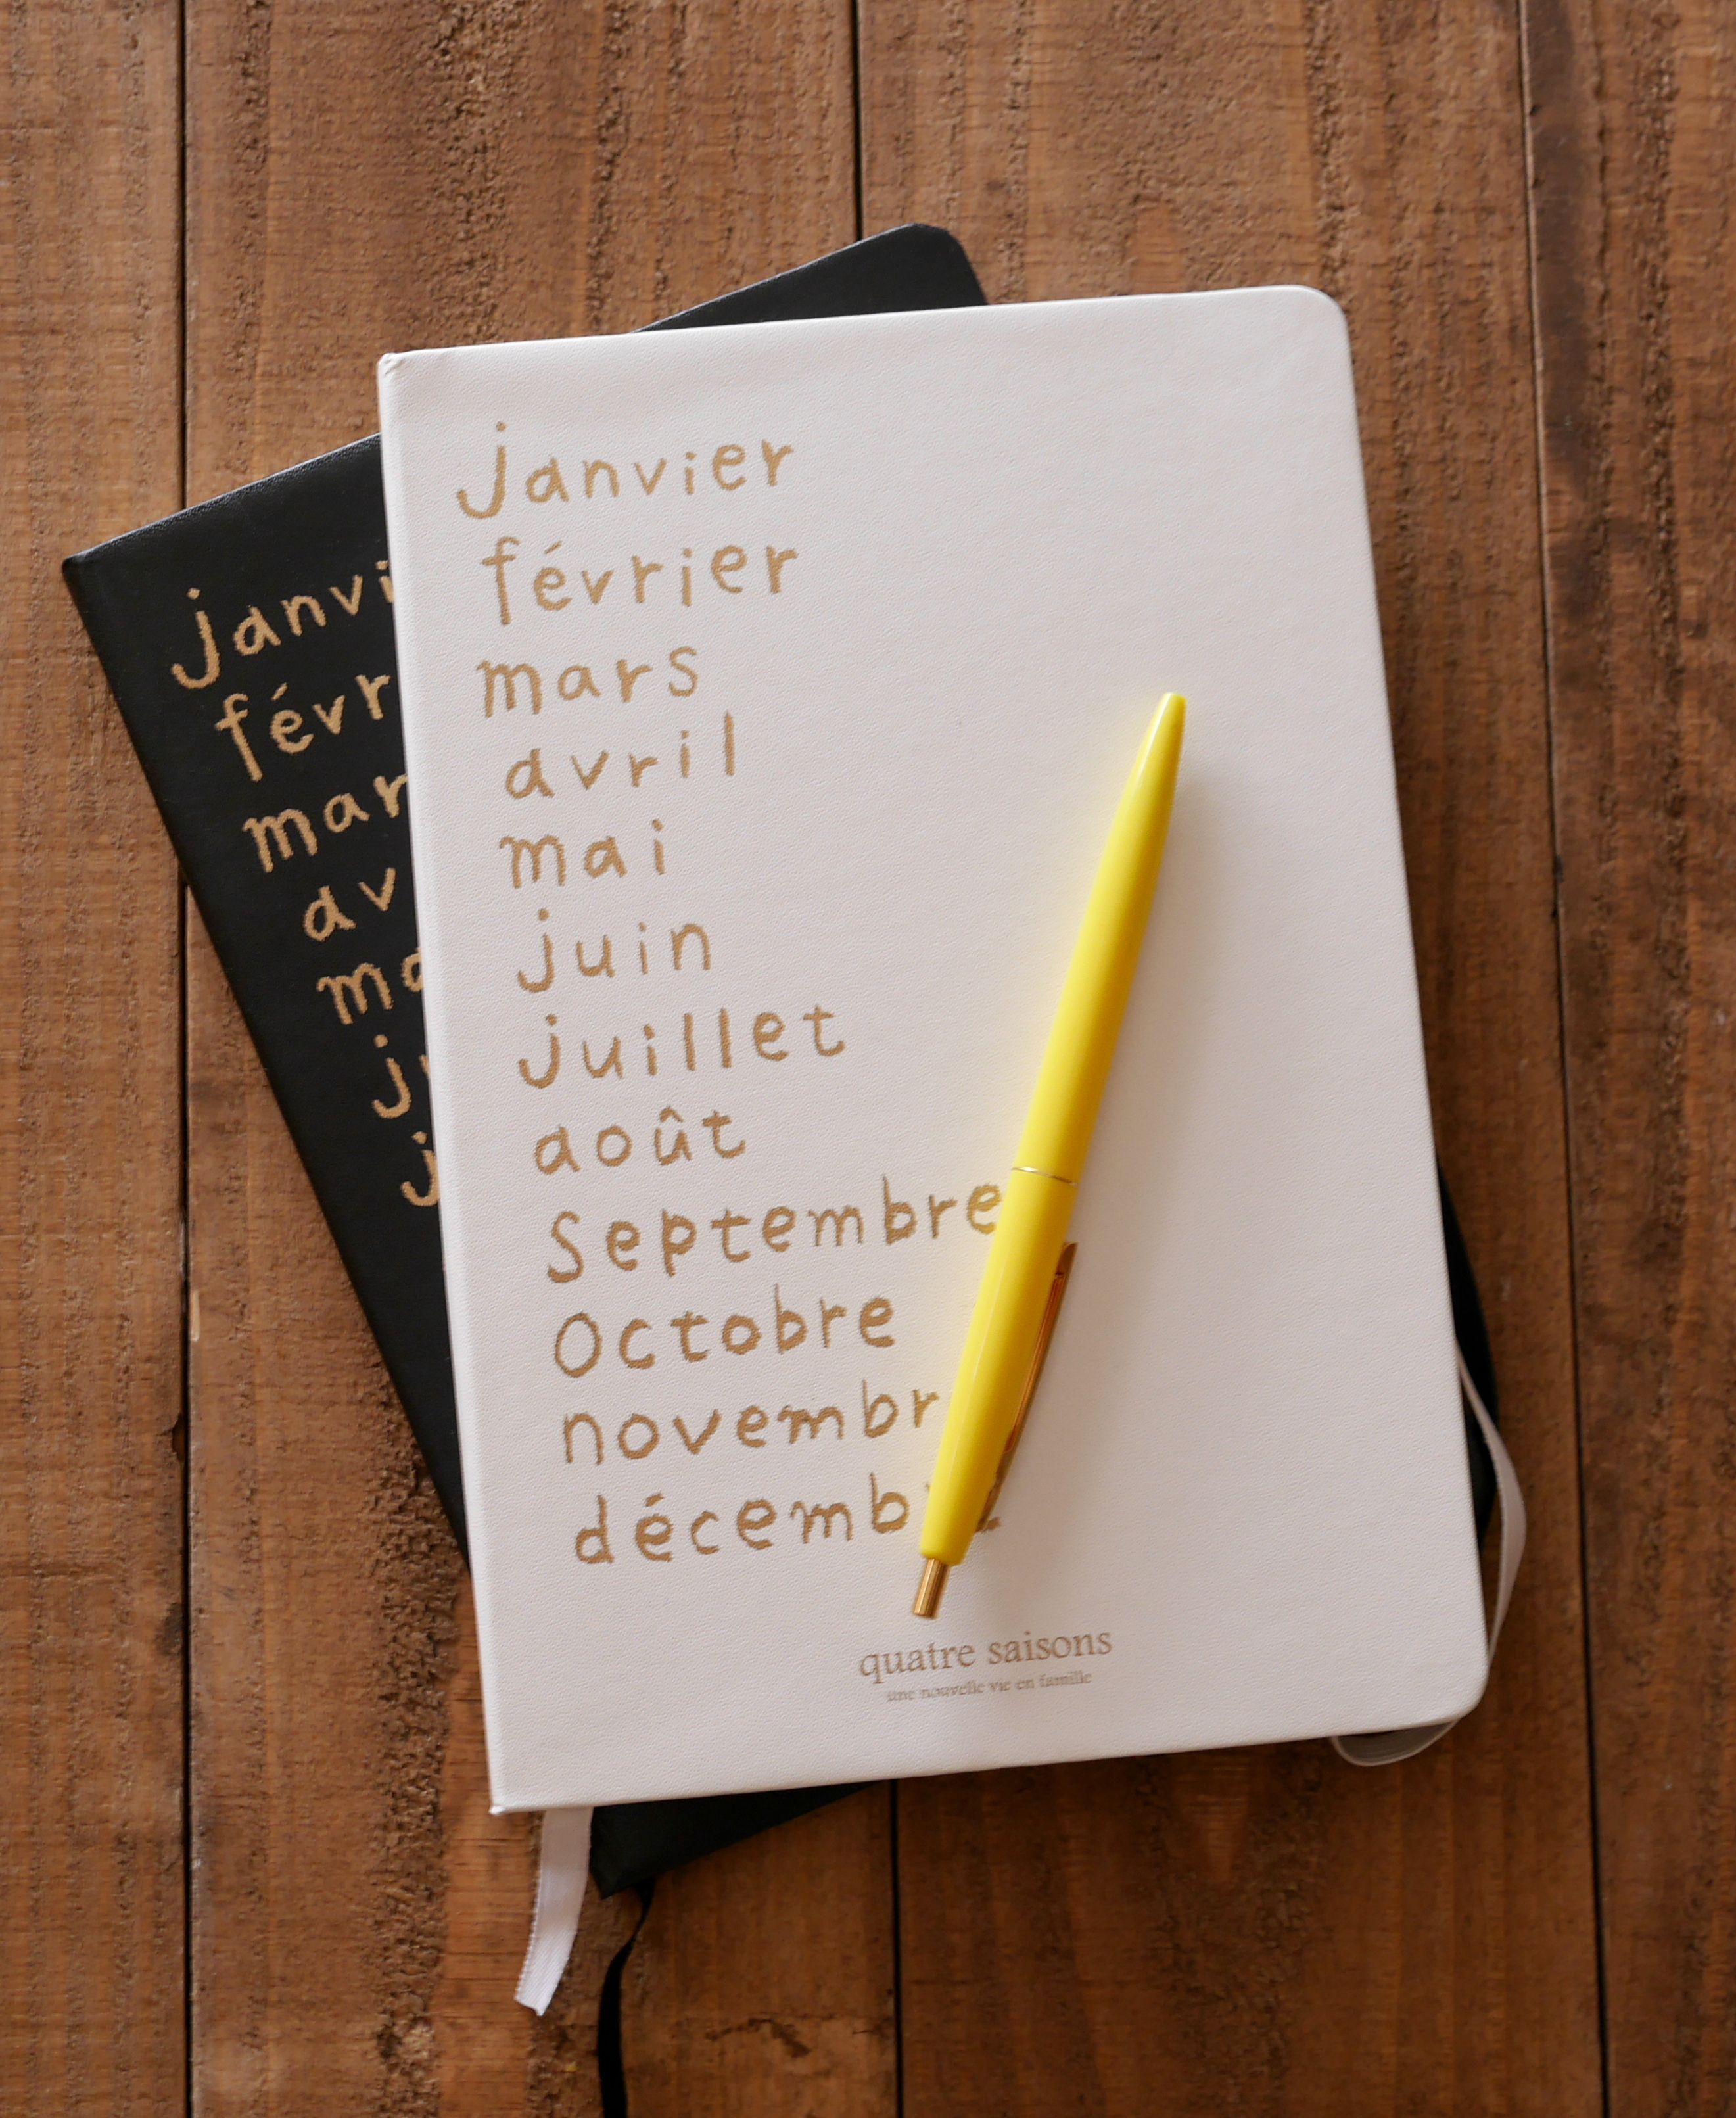 janvier
février
mars
avril
mai
juin
juillet
août
Septembre
Octobre
novembr
décemb
quatre saisons
une nouvelle vie en famille
janvi
févr
mar
av
ma
ju
j